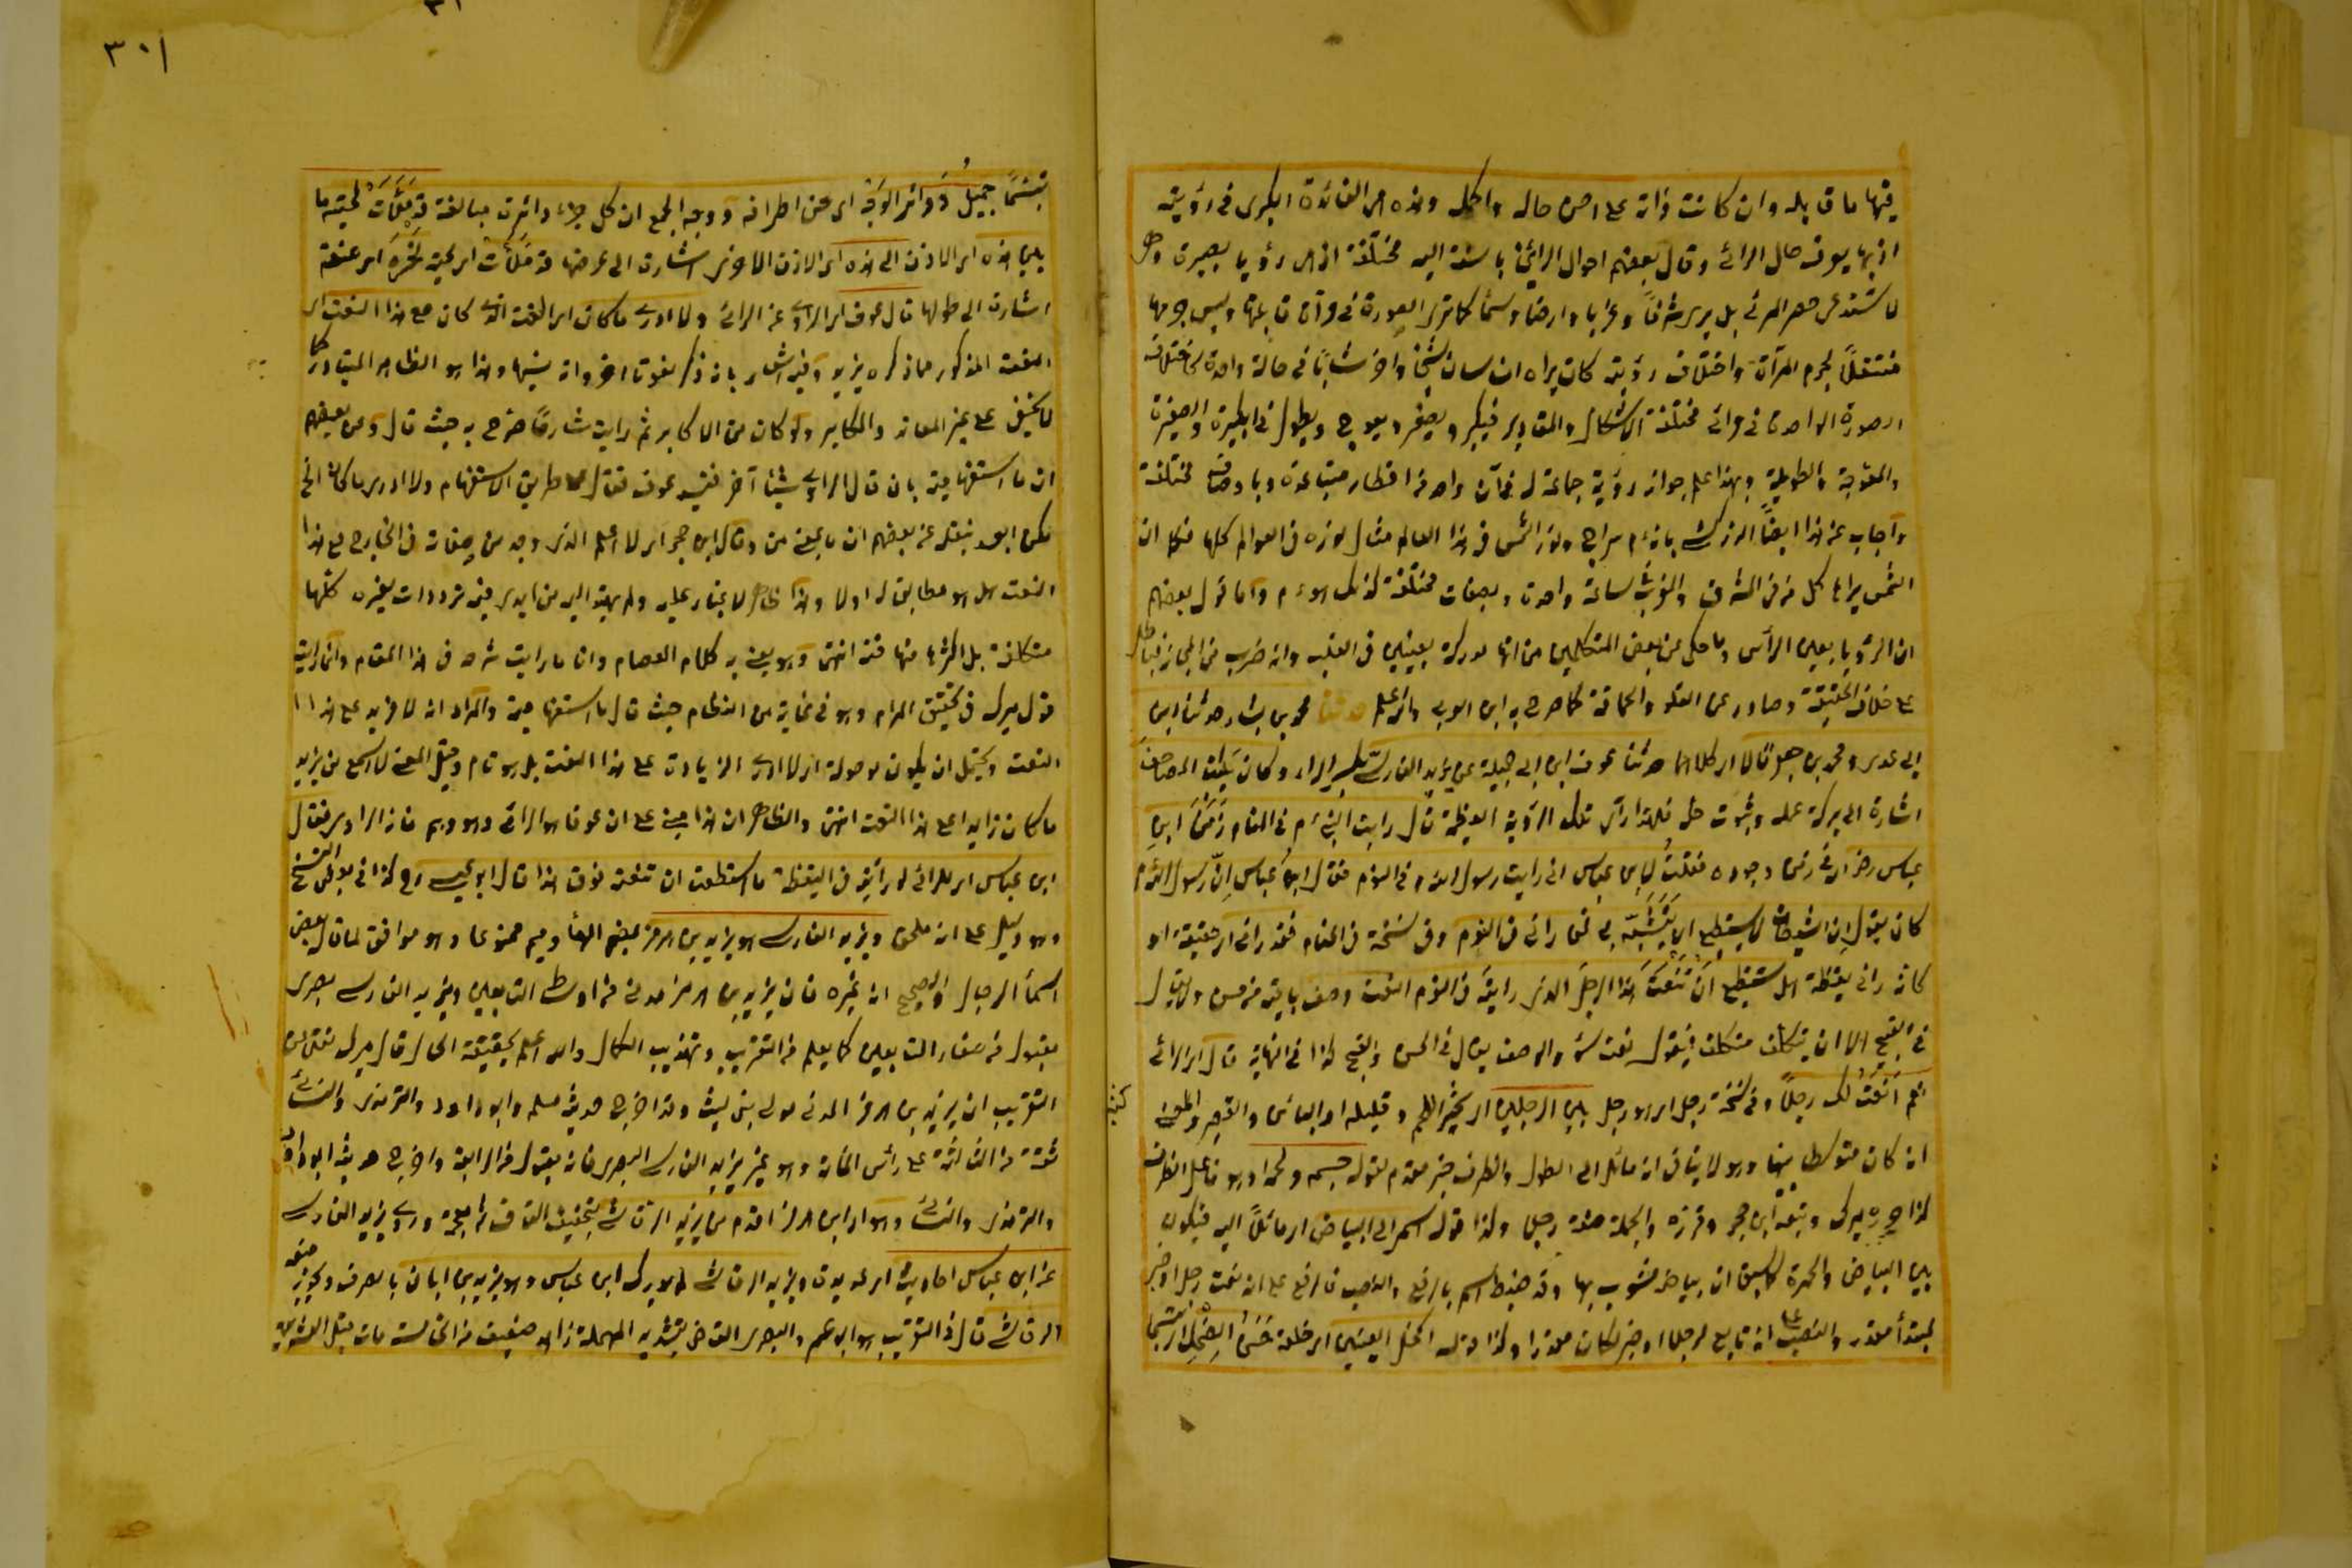 فيها ما قابله وان كانت ذاته على احسن حاله واكمله وهذه هي الفائدة الكبرى في رؤيته
اذ بها يعرف حال الرائي وقال بعضهم احوال الرائين بالنسبة اليه مختلفة اذ هي رؤيا بصيرة وهي
لا تستدعي حصر المرئي بل يرى شرقا وغربا وارضا وسماء كما ترى الصورة في مرآة قابلتها وليس جرمها
منتقلا لجرم المرآة واختلاف رؤيته كان يراه انسان شيخا واخر شابا في حالة واحدة كاختلاف
الصورة الواحدة في مرائي مختلفة الاشكال والمقادير فيكبر ويصغر ويعوج ويطول في الكبيرة والصغيرة
والمعوجة والطويلة وبهذا علم جواز رؤية جماعة له في آن واحد من اقطار متباعدة وباوصاف مختلفة
واجاب عن هذا ايضا الزركشي بانه م سراج ونور الشمس في هذا العالم مثال نوره في العوالم كلها فكما ان
الشمس يراها كل من في الشرق والغرب في ساعة واحدة وبصفات مختلفة كذلك هو م واما قول بعضهم
ان الرؤيا بعين الرأس وما حكي عن بعض المتكلمين من انها مدركة بعينين في القلب وانه ضرب من المجاز فباطل
على خلاف الحقيقة وصادر عن الغلو والحماقة كما صرح به ابن العربي والله اعلم حدثنا محمد بن بشار حدثنا ابن
ابي عدي ومحمد بن جعفر قالا اي كلاهما حدثنا عوف ابن ابي جميلة عن يزيد الفارسي بكسر الراء وكان يكتب المصاحف
اشارة الى بركة عمله وثمرته حله فلهذا رأى تلك الرؤية العظيمة قال رايت النبي م في المنام زمن ابن
عباس رضي الله في زمن وجوده فقلت لابن عباس اني رايت رسول الله م في النوم فقال ابن عباس ان رسول الله م
كان يقول ان الشيطان لا يستطيع ان يتشبه بي فمن راني في النوم وفي نسخة في المنام فقد راني اي حقيقة او
كانه راني يقظة هل تستطيع ان تنعت هذا الرجل الذي رايته في النوم النعت وصف بما فيه من حسن ولا يقال
في القبيح الا ان يتكلف متكلف فيقول نعت سوء والوصف يقال في الحسن والقبيح كذا في النهاية قال اي الرائي
نعم انعت لك رجلا وفي نسخة رجل اي هو رجل بين الرجلين اي كثير اللحم وقليله او البائن والقصير والمعنى
انه كان متوسطا بينهما وهو لا ينافي انه مائل الى الطول والظرف خبر مقدم لقوله جسمه ولحمه او هو فاعل الظرف
كذا حرره ميرك وتبعه ابن حجر وقرره والجملة صفة رجل وكذا قوله اسمر الى البياض اي مائلا اليه فيكون
بين البياض والحمرة كما سبق ان بياضه مشوب بها وقد ضبط اسمر بالرفع والنصب فالرفع على انه نعت رجل او خبر
لمبتدأ مقدر والنصب على انه تابع لرجلا او خبر لكان مقدرا وكذا قوله اكحل العينين اي خلقة حسن الضحك اي تبسما
تبسما جميل دوائر الوجه اي حسن اطرافه ووجه الجمع ان كل جزء دائرة مبالغة قد ملأت لحيته ما
بين هذه اي الاذن الى هذه اي الاذن الاخرى اشارة الى عرضها قد ملأت اي لحيته نحره اي عنقه
اشارة الى طولها قال عوف اي الراوي عن الرائي ولا ادري ما كان اي النعت الذي كان مع هذا النعت اي
النعت المذكور مما ذكره يزيد وفيه اشعار بانه ذكر نعوتا اخر وانه نسيها وهذا هو الظاهر المتبادر كما
لا يخفى على غير المعاند والمكابر ولو كان من الاكابر ثم رايت شارحا صرح به حيث قال وعن بعضهم
ان ما استفهامية بان قال الراوي شيئا آخر فنسيه عوف فقال على طريق الاستفهام ولا ادري ما كان الخ
لكن ابعد بنقله عن بعضهم ان ما بمعنى من وقال ابن حجر اي لا اعلم الذي وجد من صفاته في الخارج مع هذا
النعت هل هو مطابق له اولا وهذا ظاهر لا غبار عليه ولم يهتد اليه من ابدى فيه ترددات بغيره كلها
متكلفة بل اكثرها متهافت انتهى وهو يعني به كلام العصام وانا ما رايت شرحه في هذا المقام واني رايت
قول ميرك في تحقيق المرام وهو في غاية من النظام حيث قال ما استفهامية والمراد انه لا مزيد على هذا
النعت ويحتمل ان يكون موصولة اي لا ادري الزيادة على هذا النعت بل هو تام وقيل المعنى لا اسمع من يزيد
ما كان زايدا على هذا النعت انتهى والظاهر ان هذا مبني على ان عوفا هو الرائي وهو وهم فانه الراوي فقال
ابن عباس اي للرائي لو رأيته في اليقظة ما استطعت ان تنعته فوق هذا قال ابو عيسى كذا في بعض النسخ
وهو دليل على انه ملحق ويزيد الفارسي هو يزيد بن هرمز بضم الهاء وميم ممنوعا وهو موافق لما قال بعض
اسماء الرجال والصحيح انه غيره فان يزيد بن هرمز مدني من اوسط التابعين ويزيد الفارسي بصري
مقبول من صغار التابعين كما يعلم من التقريب وتهذيب الكمال والله اعلم بحقيقة الحال قال ميرك نقلا عن
التقريب ان يزيد بن هرمز المدني مولى بني ليث وقد اخرج حديثه مسلم وابو داود والترمذي والنسائي
ثقة من الثالثة على رأس المائة وهو غير يزيد الفارسي البصري فانه مقبول من الرابعة واخرج حديثه ابو داود
والترمذي والنسائي وهو اي ابن هرمز اقدم من يزيد الرقاشي بتخفيف القاف ثم معجمة وروى يزيد الفارسي
عن ابن عباس احاديث اي عديدة ويزيد الرقاشي لم يدرك ابن عباس وهو يزيد بن ابان بالصرف ويجوز منعه
الرقاشي قال في التقريب هو ابو عمرو البصري القاص بتشديد المهملة زاهد ضعيف من الخامسة مات قبل العشرين
٣٠١